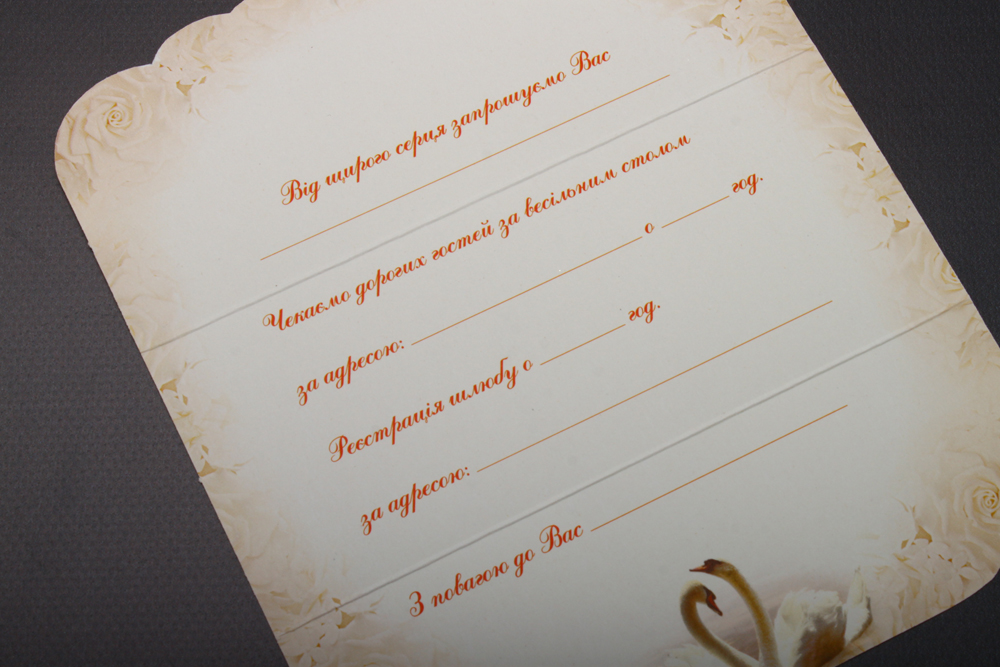 Від щирого серця запрошуємо Вас
Чекаємо дорогих гостей за весільним столом
за адресою: ____________________ о ________ год.
Реєстрація шлюбу о __________ год.
за адресою: ________________________________
З повагою до Вас ______________________